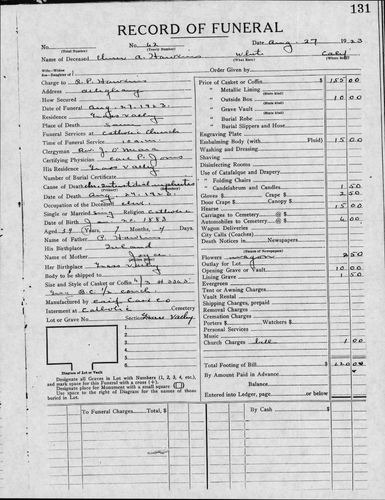 131
RECORD OF FUNERAL
No. No. 62 Date Aug. 27 1923
(Total Number) (Yearly Number)
Name of Deceased A. Hawkins White Calif
(What Race) (Where Born)
Wife-Widow
Son-Daughter of Order Given by
Charge to P. Hawkins
Address Allegheny
How Secured
Date of Funeral Aug. 29, 1923.
Residence Grass Valley
Place of Death Same
Funeral Services at Catholic Church
Time of Service 10 a.m.
Clergyman Rev. J. O'Meara
Certifying Physician Carl P. Jones
His Residence Grass Valley
Number of Burial Certificate
Cause of Death Interstitial nephritis
Date of Death Aug. 27, 1923.
Occupation of the Deceased
Single or Married Sing Religion Catholic
Date of Birth Jan. 20. 1883
Aged Years, 7 Months, 7 Days.
Name of Father P. Hawkins
His Birthplace Ireland
Name of Mother Joyce
Her Birthplace Grass Valley
Body to be shipped to
Size and Style of Casket or Coffin
Manufactured by Calif Cas Co
Interment at Catholic Cemetery
Lot or Grave No. Section Grass Valley
1.
2.
3.
4.
5.
Diagram of Lot or Vault
Designate all Graves in Lot with Numbers (1, 2, 3, 4, etc.),
and mark space for this Funeral with a cross (+).
Designate place for Monument with a small square
Use space to the right of Diagram for the names of those
buried in Lot.
Price of Casket or Coffin $ 155 00
" Metallic Lining
(State Kind)
" Outside Box 10 00
(State Kind)
" Grave Vault
(State Kind)
" Burial Robe
(State Kind)
" Burial Slippers and Hose
Engraving Plate
Embalming Body (with Fluid) 15 00
Washing and Dressing
Shaving
Disinfecting Rooms
Use of Catafalque and Drapery
" Folding Chairs
" Candelabrum and Candles 1 50
Gloves $ Crape $ 2 50
Door Crape Canopy
Hearse 15 00
Carriages to Cemetery @ $
Automobiles to Cemetery @ $ 6 00
Wagon Deliveries
City Calls (Coaches)
Death Notices in Newspapers
(Names of Newspapers)
Flowers wagon 2 50
Outlay for Lot
Opening Grave or Vault 10 00
Lining Grave 1 50
Evergreen
Tent or Awning Charges
Vault Rental
Shipping Charges, prepaid
Removal Charges
Cremation Charges
Porters $ Watchers $
Personal Services
Music
Church Charges bell 1 00
Total Footing of Bill $ 220 00
By Amount Paid in Advance
Balance
Entered into Ledger, page or below
To Funeral Charges, Total $
By Cash $